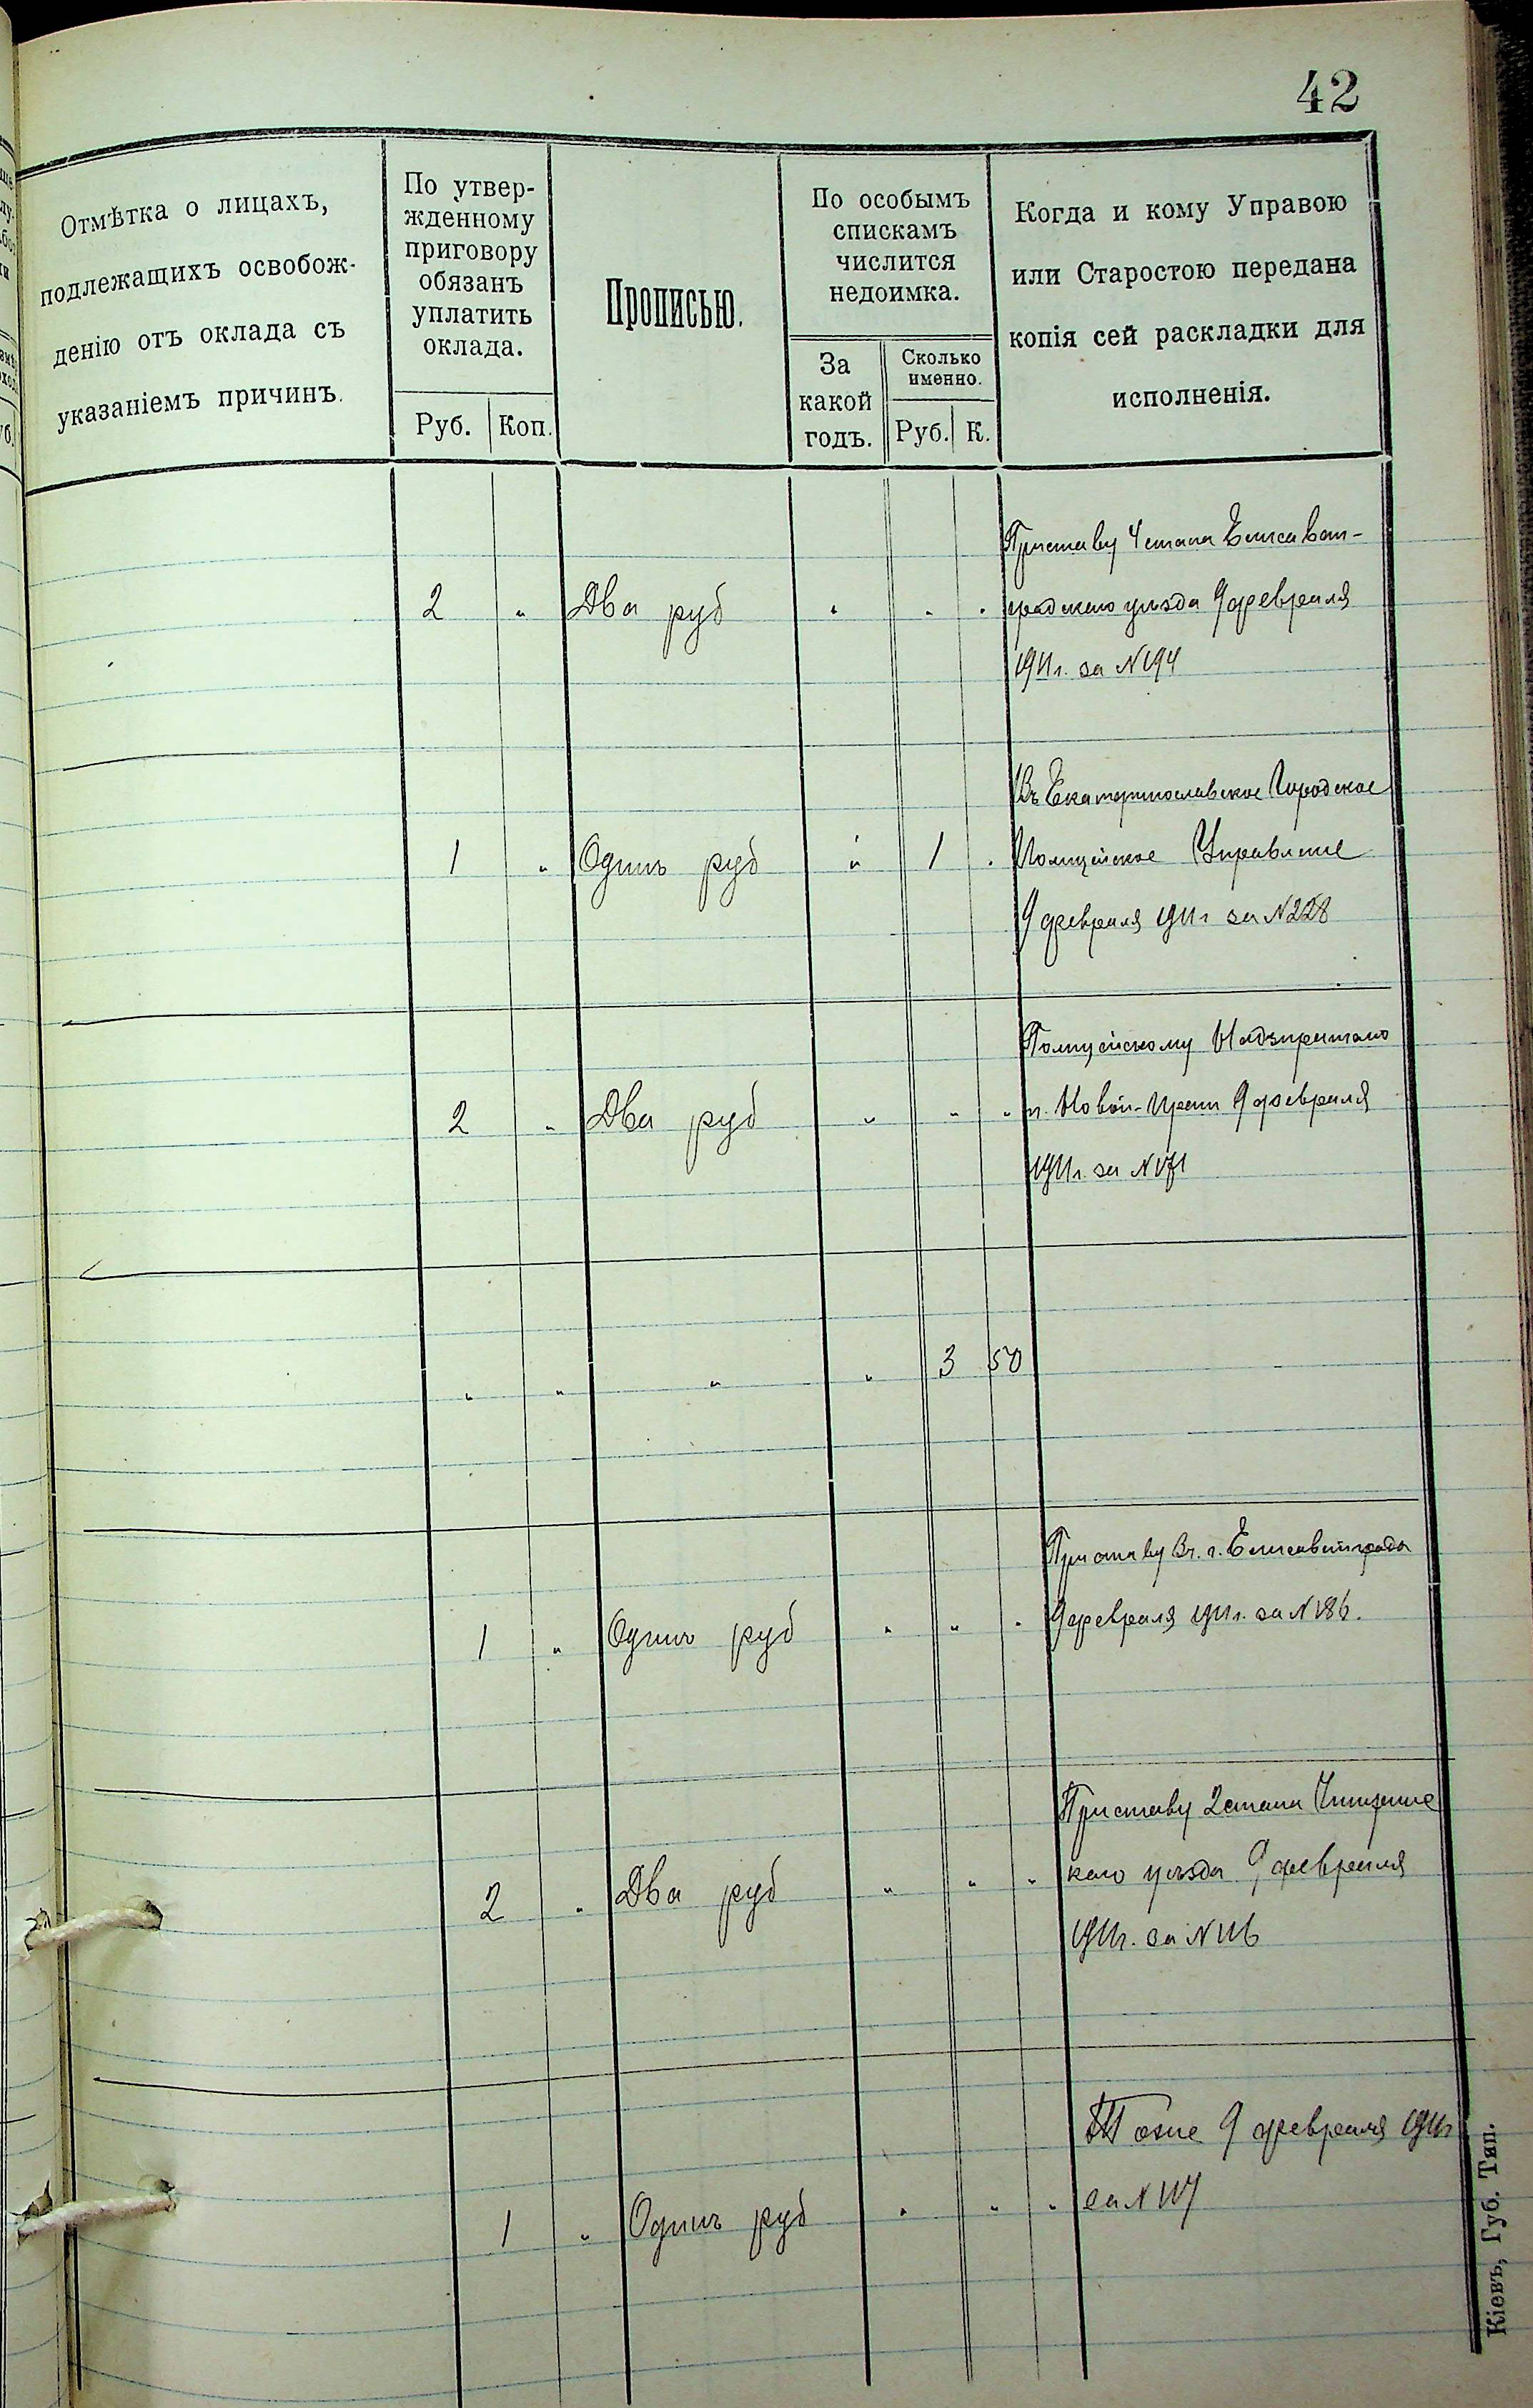 42
Отмѣтка о лицахъ,
подлежащихъ освобож-
денію отъ оклада съ
указаніемъ причинъ.
По утвер-
жденному
приговору
обязанъ
уплатить
оклада.
Руб. Коп.
Прописью.
По особымъ
спискамъ
числится
недоимка.
За
какой
годъ.
Сколько
именно.
Руб. К.
Когда и кому Управою
или Старостою передана
копія сей раскладки для
исполненія.
Приставу 4 стана Елисавет-
2 " Два руб " " " градскаго уѣзда 9 февраля
1911 г. за N 194
Въ Екатеринославское Городское
1 " Одинъ руб " 1 " Полицейское Управленіе
9 февраля 1911 г за N 228
Полицейскому Надзирателю
2 " Два руб " " " п. Новой-Праги 9 февраля
1911 г. за N 171
" " " " 3 50
Приставу г. Елисаветграда
1 " Одинъ руб " " " 9 февраля 1911 г. за N 186.
Приставу 2 стана
2 " Два руб " " " каго уѣзда 9 февраля
1911 г. за N 116
Тоже 9 февраля 1911 г
1 " Одинъ руб " " " за N 117
Кіевъ, Губ. Тип.